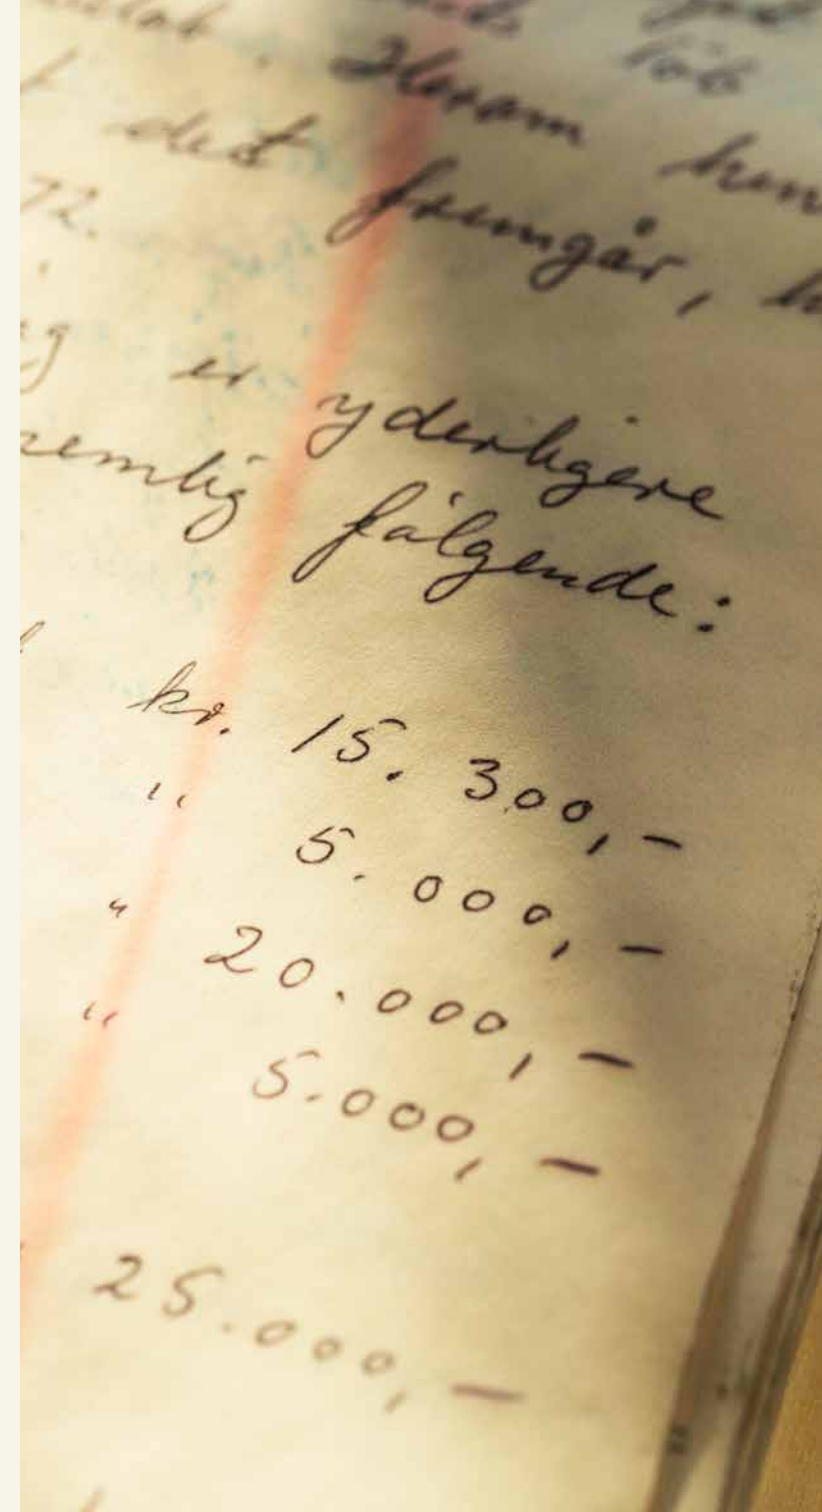 löb
Herom hen
det fremgår, h
72.
ig er yderligere
nemlig følgende:
kr. 15.300,-
" 5.000,-
" 20.000,-
" 5.000,-
25.000,-